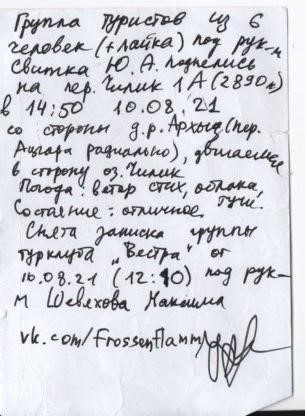 Группа туристов из 6
человек (+лайка) под рук-м
Свитка Ю.А. поднялись
на пер. Чилик 1А (2890м)
в 14:50 10.08.21
со стороны д.р. Архыз (пер.
Ацгара радиально), двигаемся
в сторону оз. Чилик
Погода: ветер стих, облака,
туч.
Состояние: отличное
Снята записка группы
турклуба „Вестра" от
10.08.21 (12:10) под рук-
м Шевяхова Максима
vk.com/Frossenflamm